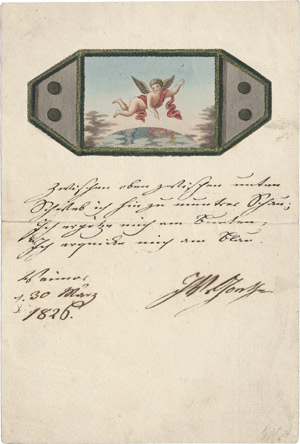 Zwischen oben zwischen unten
Schweb' ich hin zu muntrer Schau;
Ich ergötze mich am Bunten,
Ich erquicke mich am Blau.
Weimar
d. 30 März
1826.
JWGoethe